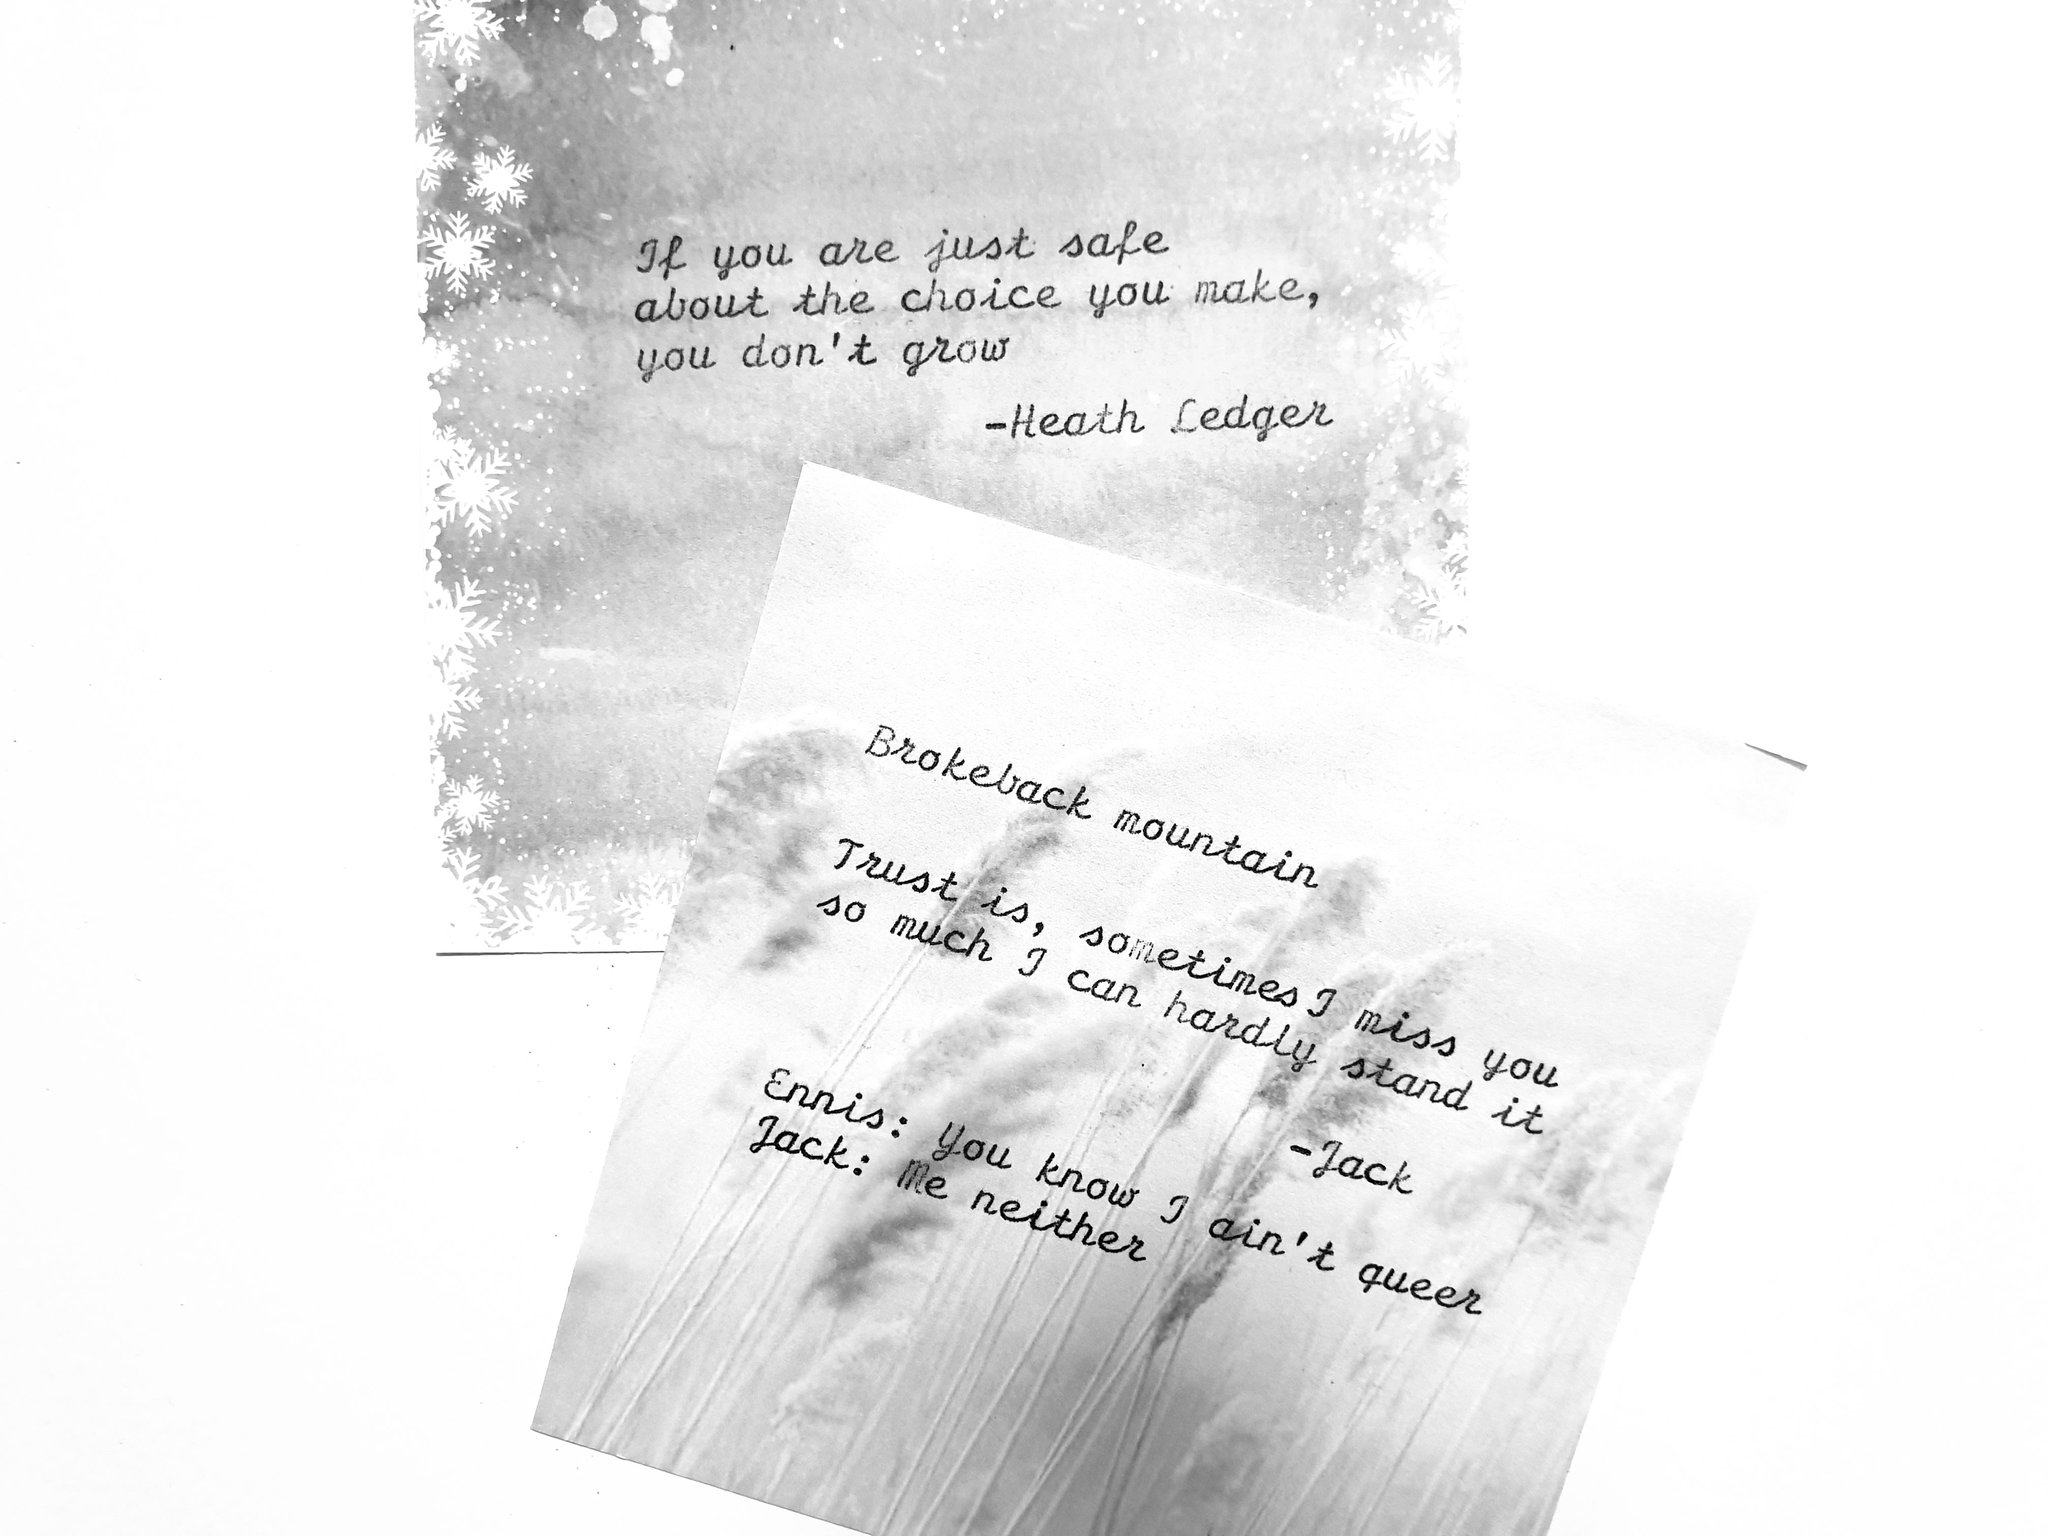 If you are just safe
about the choice you make,
you don't grow
-Heath Ledger
Brokeback mountain
Trust is, sometimes I miss you
so much I can hardly stand it
-Jack
Ennis: You know I ain't queer
Jack: Me neither